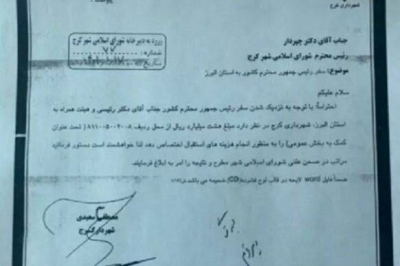 شهرداری کرج
ورود به دبیرخانه شورای اسلامی شهر کرج
شماره: ۷۷
جناب آقای دکتر چپردار
رئیس محترم شورای اسلامی شهر کرج
موضوع: سفر رئیس جمهور محترم کشور به استان البرز
سلام علیکم
احتراماً با توجه به نزدیک شدن سفر رئیس جمهور محترم کشور جناب آقای دکتر رئیسی و هیئت همراه به
استان البرز، شهرداری کرج در نظر دارد مبلغ هشت میلیارد ریال از محل ردیف (تحت عنوان
کمک به بخش عمومی) را به منظور انجام هزینه های استقبال اختصاص دهد لذا خواهشمند است دستور فرمائید
مراتب در صحن علنی شورای اسلامی شهر مطرح و نتیجه را امر به ابلاغ فرمایند.
ضمناً فایل word لایحه در قالب لوح فشرده(CD) ضمیمه می باشد
مصطفی سعیدی
شهردار کرج